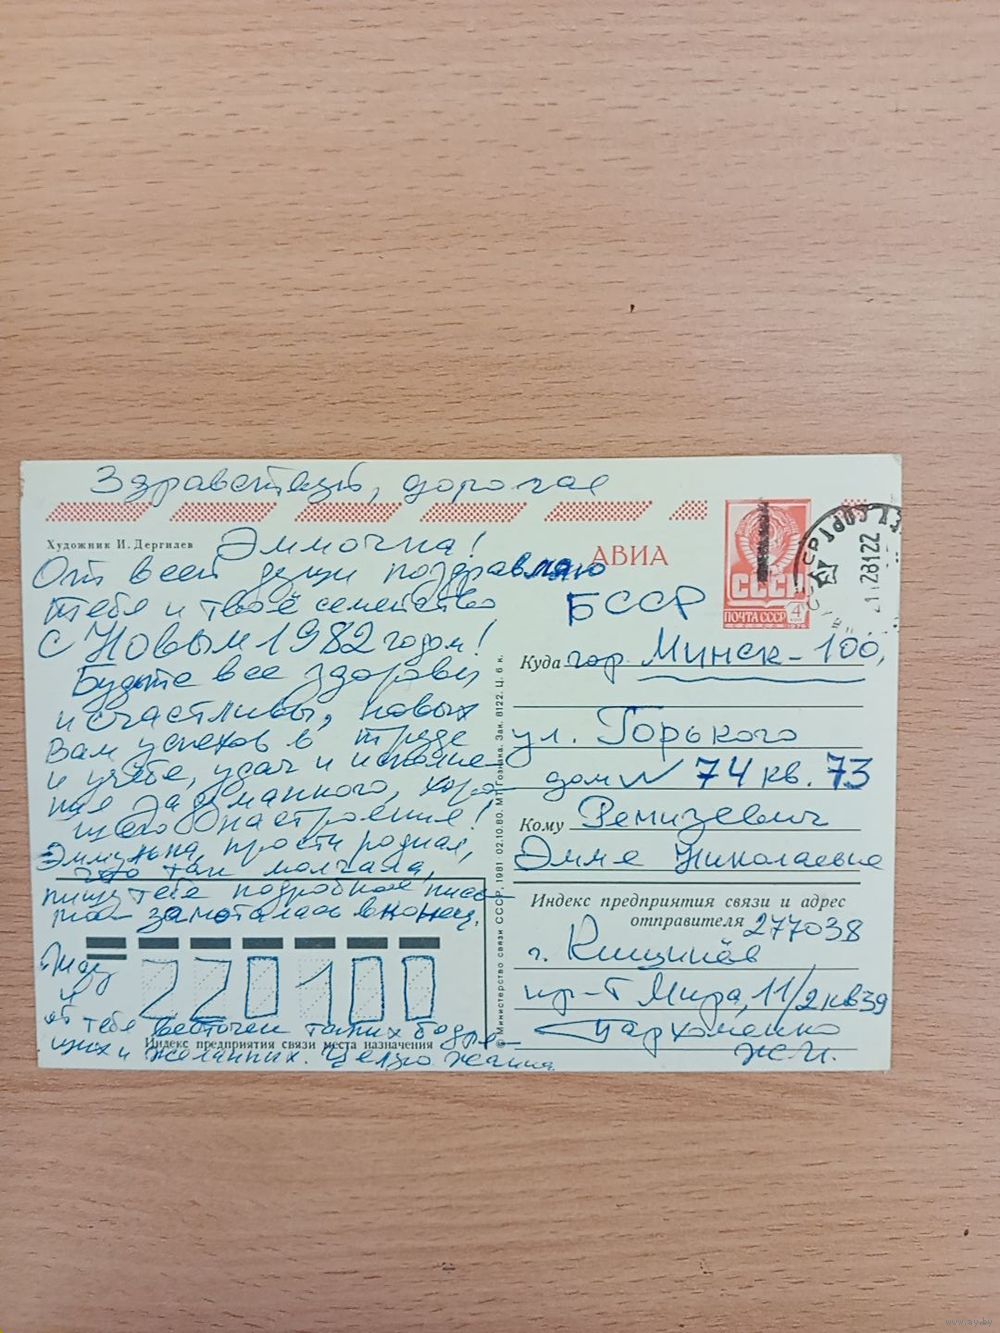 Здравствуй, дорогая
Художник И. Дергилев
Эммочка!
От всей души поздравляю
тебя и твоё семейство
с Новым 1982 годом!
Будьте все здоровы
и счастливы, новых
Вам успехов в труде
и учёбе, удач и исполне-
ния задуманного, хоро-
шего настроения!
прости родная,
что так молчала,
пишу тебе подробное пись-
мо замоталась вконец.
Жду
от тебя весточек таких бодря-
щих и желанных. Целую Жанна
220100
Индекс предприятия связи места назначения
© Министерство связи СССР, 1981. 02.10.80. МТ Гознака. Зак. 8122. Ц. 6 к.
АВИА
СССР
ПОЧТА СССР
4
1976
281 22
БССР
Куда гор. Минск-100,
ул. Горького
дом № 74 кв. 73
Кому Ремизевич
Эмме Николаевне
Индекс предприятия связи и адрес
отправителя 277038
г. Кишинёв
пр-т Мира, 11/2 кв 39
Пархоменко
Ж.И.
www.ay.by